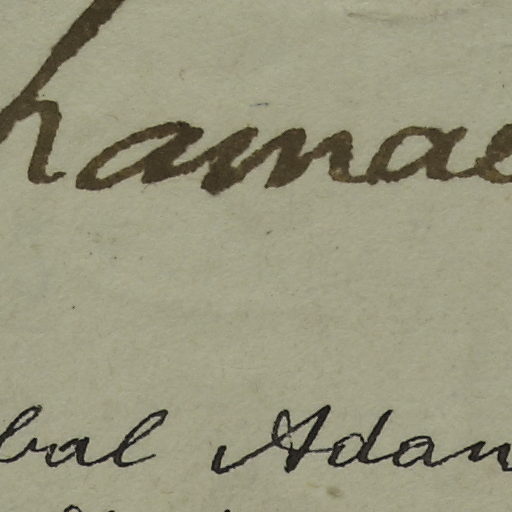 hamae
bal Adam